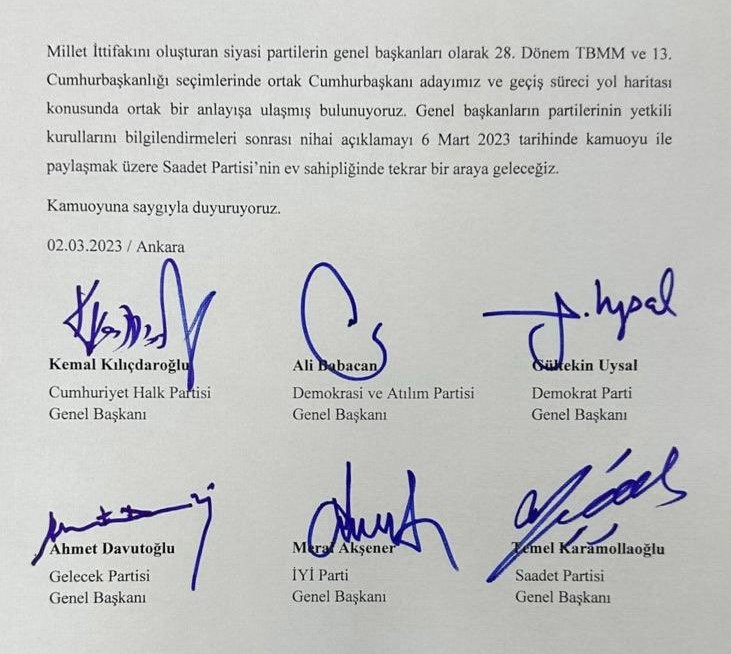 Millet İttifakını oluşturan siyasi partilerin genel başkanları olarak 28. Dönem TBMM ve 13.
Cumhurbaşkanlığı seçimlerinde ortak Cumhurbaşkanı adayımız ve geçiş süreci yol haritası
konusunda ortak bir anlayışa ulaşmış bulunuyoruz. Genel başkanların partilerinin yetkili
kurullarını bilgilendirmeleri sonrası nihai açıklamayı 6 Mart 2023 tarihinde kamuoyu ile
paylaşmak üzere Saadet Partisi’nin ev sahipliğinde tekrar bir araya geleceğiz.
Kamuoyuna saygıyla duyuruyoruz.
02.03.2023 / Ankara
Kemal Kılıçdaroğlu
Cumhuriyet Halk Partisi
Genel Başkanı
Ali Babacan
Demokrasi ve Atılım Partisi
Genel Başkanı
Gültekin Uysal
Demokrat Parti
Genel Başkanı
Ahmet Davutoğlu
Gelecek Partisi
Genel Başkanı
Meral Akşener
İYİ Parti
Genel Başkanı
Temel Karamollaoğlu
Saadet Partisi
Genel Başkanı